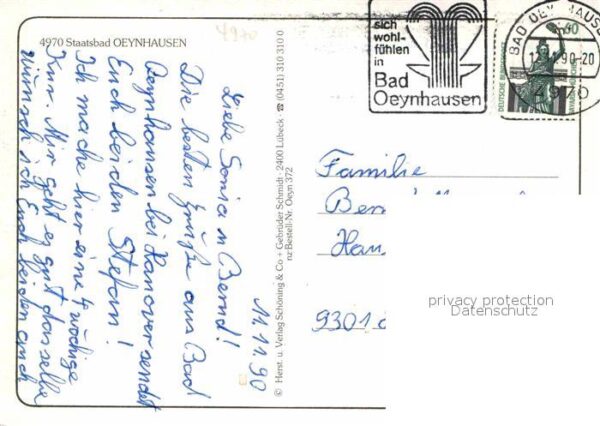 4970 Staatsbad OEYNHAUSEN
4970
11.11.90
Liebe Sonia u Bernd!
Die besten Grüße aus Bad
Oeynhausen bei Hanover sendet
Euch beiden Stefan!
Ich mache hier eine 4 wöchige
Kur. Mir geht es gut dasselbe
wünsche ich Euch beiden auch
© Herst. u. Verlag Schöning & Co + Gebrüder Schmidt · 2400 Lübeck · ☎ (0451) 310 310 0
nz Bestell-Nr. Oeyn 372
sich
wohl-
fühlen
in
Bad
Oeynhausen
BAD OEYNHAUSE
90-20
4970
60
DEUTSCHE BUNDESPOST
BAVARIA MÜNCHEN
Familie
Ber
Han
9301
privacy protection
Datenschutz